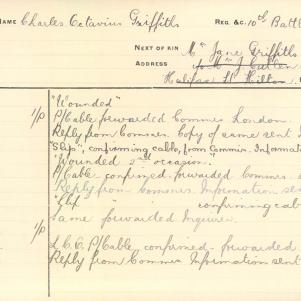 NAME Charles Octavius Griffiths REG. &C: 10th Battl
NEXT OF KIN Mrs Jane Griffiths
ADDRESS
Halifax St Hilton.
"Wounded"
1/P P/Cable forwarded Commrs London.
Reply from Commr. Copy of same sent
"Slip", confirming cable, from Commr. Informat
"Wounded 2nd occasion."
P/Cable - confirmed - forwarded Commr.
Reply from Commr. Information sen
"Slip" " confirming cab
Same forwarded Inquirer.
1/P L.C.C. P/Cable confirmed - forwarded
Reply from Commr Information sent